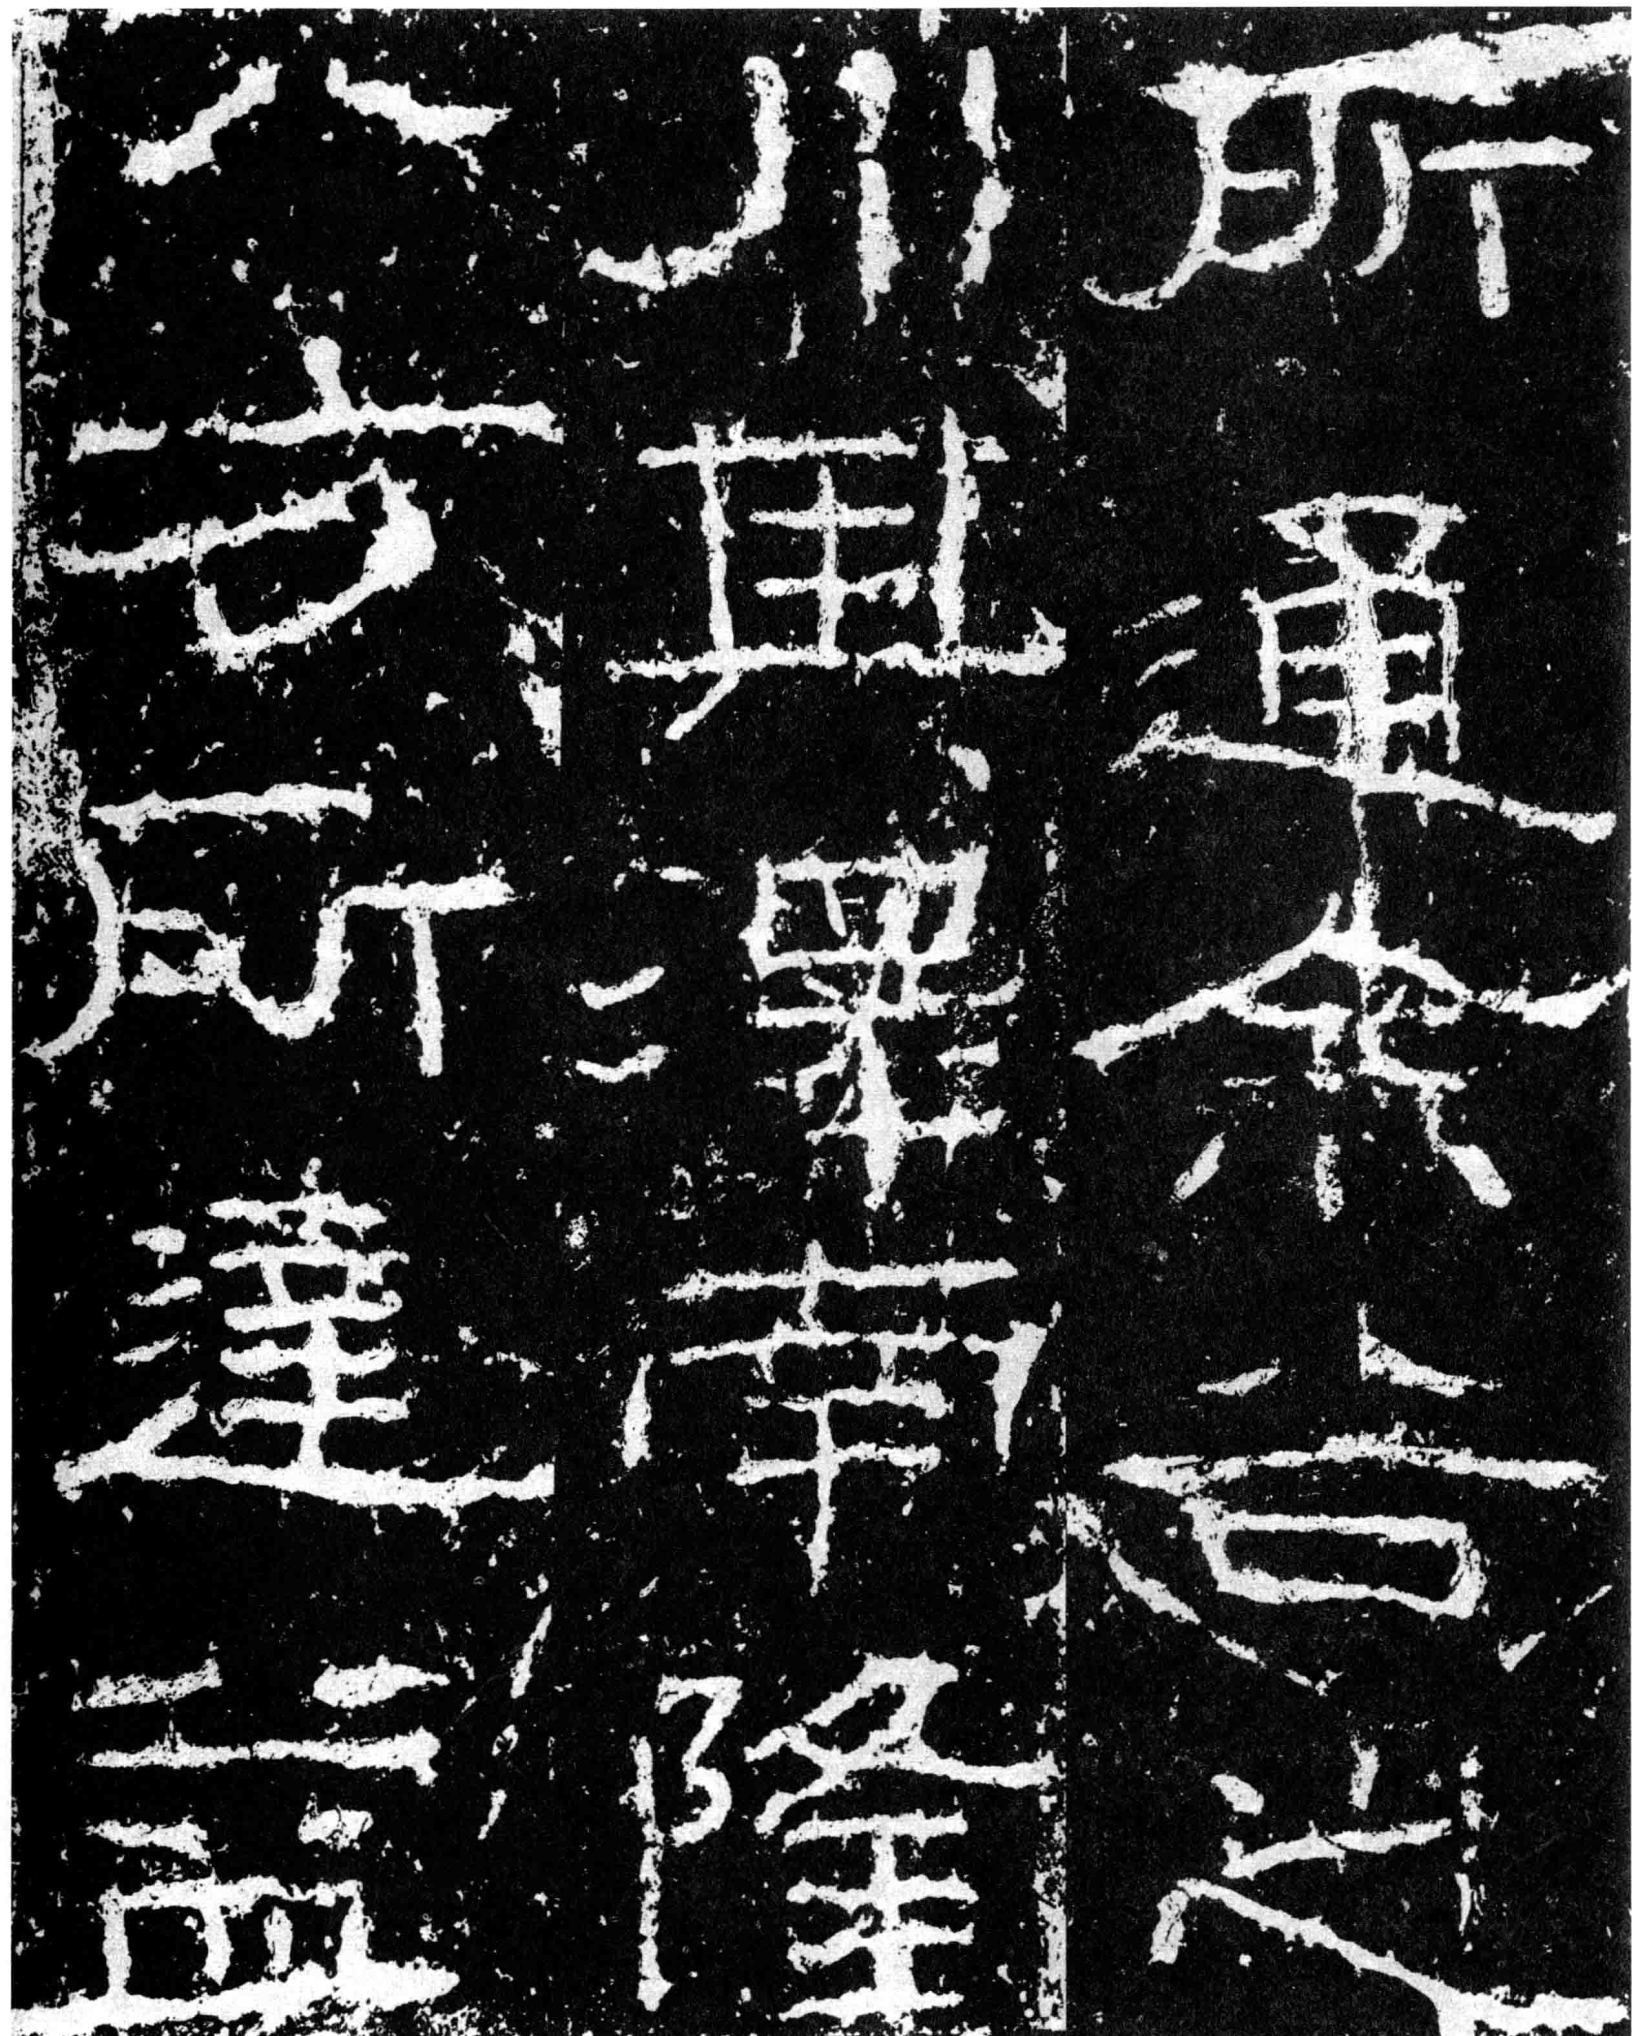 所通余谷之
川其澤南隆
八方所達益